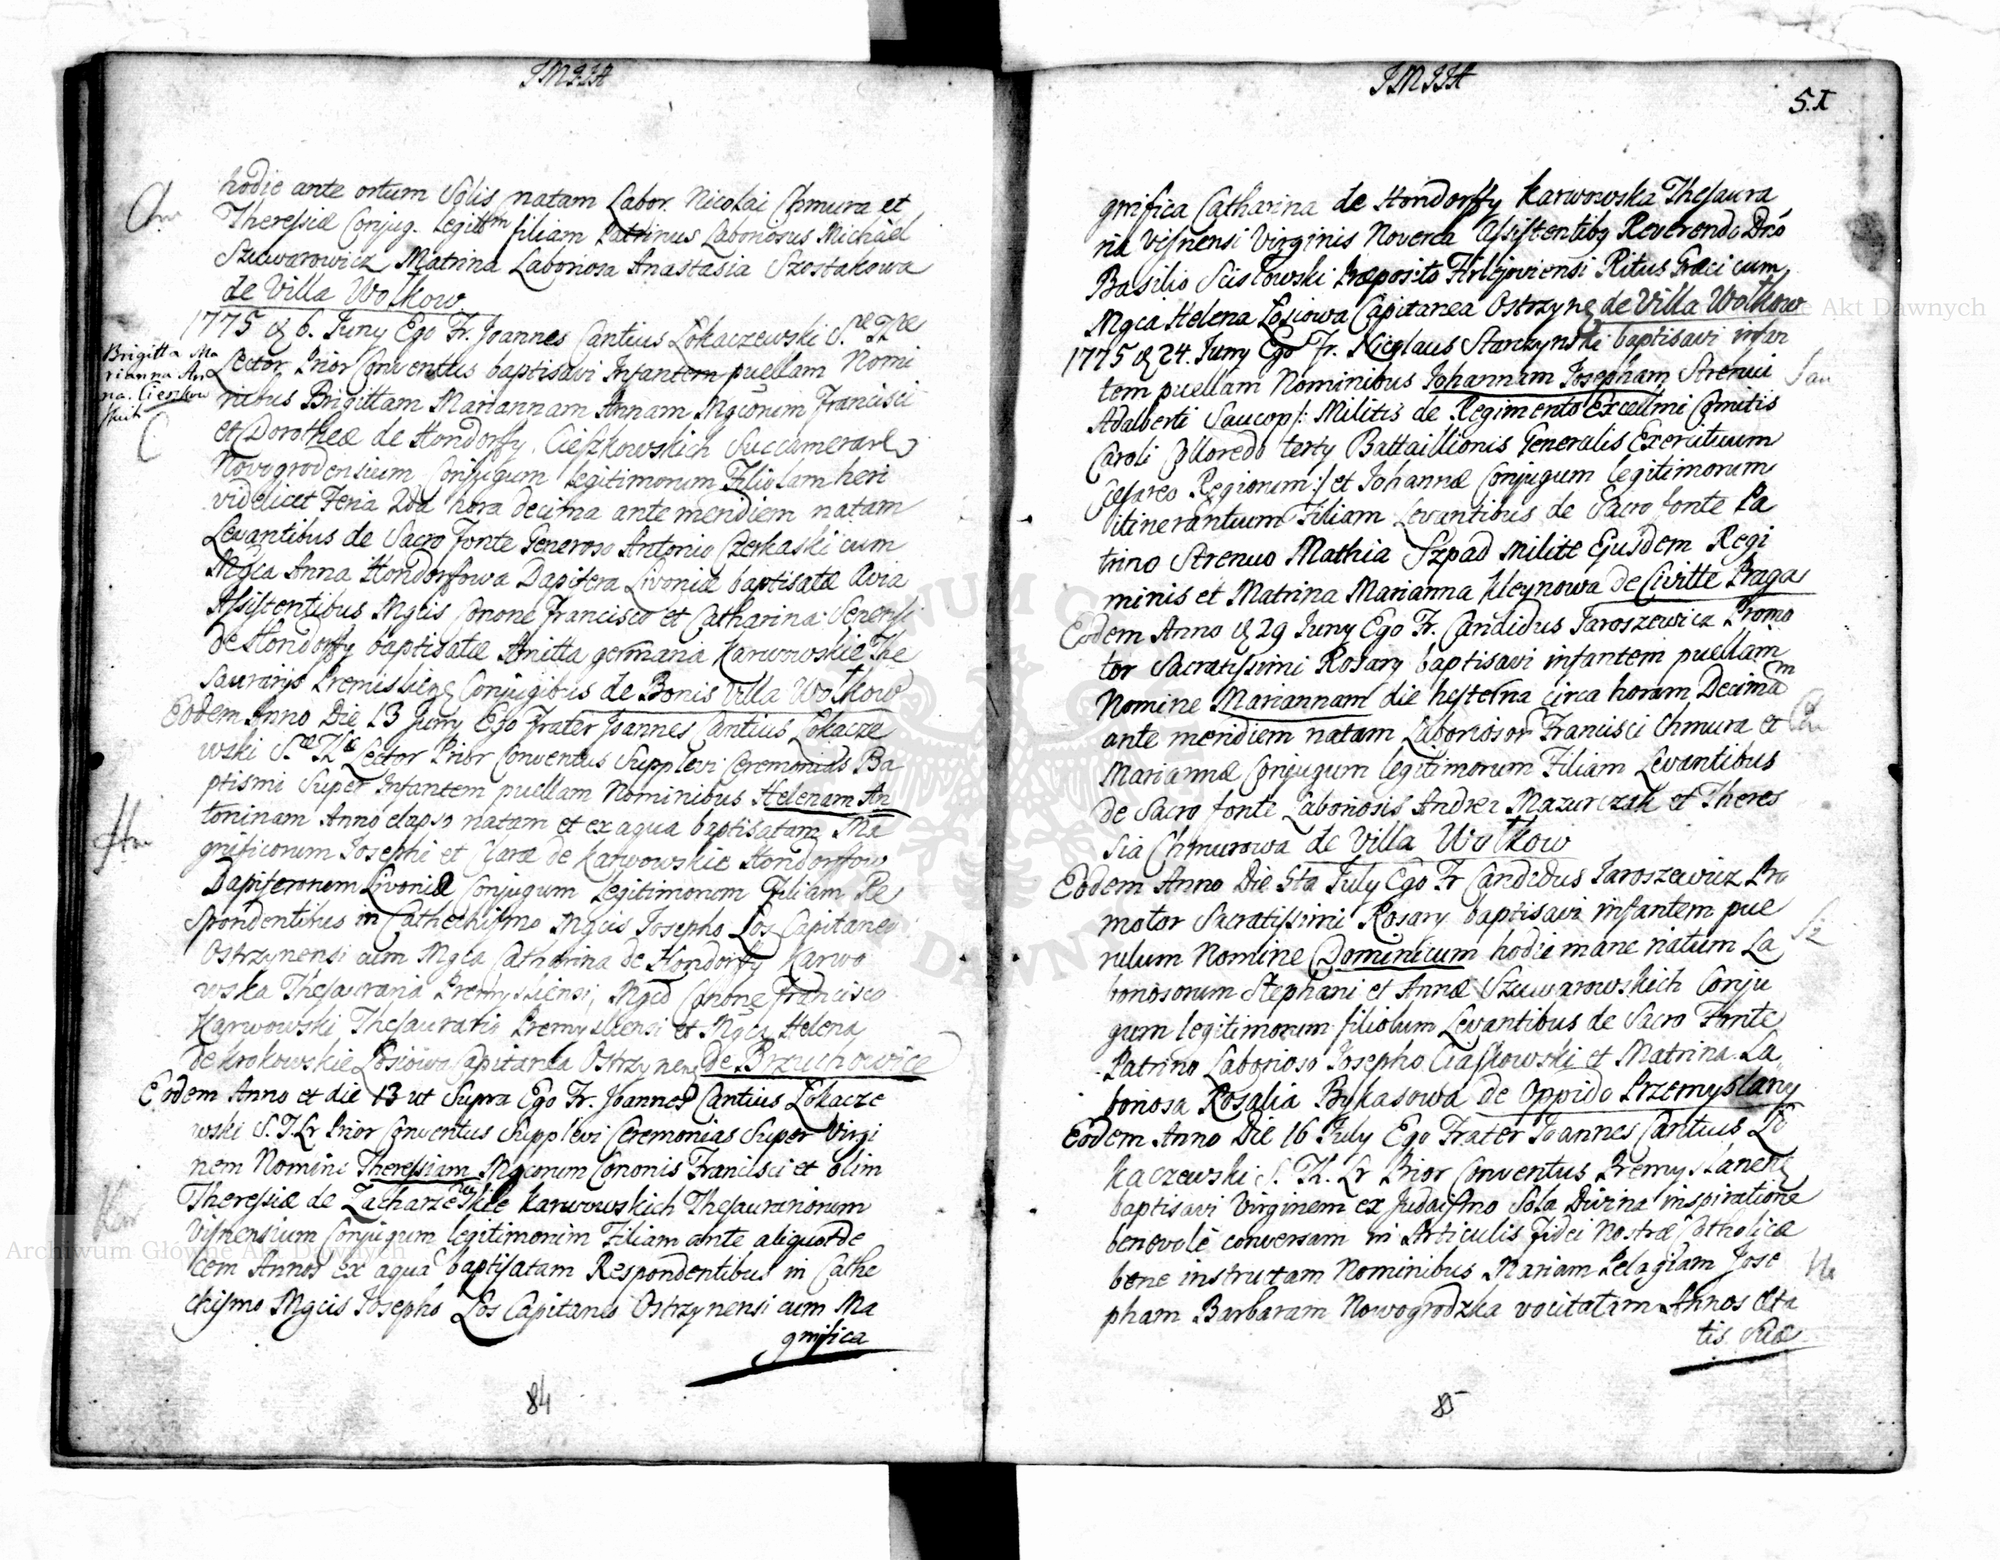 IMIIA
hodie ante ortum Solis natam Labor. Nicolai Chmura et
Theresiæ Conjug. Legittm filiam Patrinus Laboriosus Michael
Szuwarowicz Matrina Laboriosa Anastasia Szostakowa
de Villa Wołkow
1775 d 6. Juny Ego Fr. Joannes Cantius Łokaczewski S.æ Th.æ
Brigitta Ma
rianna An
na. Cieszkow
skich
C
Lector Prior Conventus baptisavi Infantem puellam Nomi
nibus Brigittam Mariannam Annam Mgcorum Francisci
et Dorotheæ de Hondorffy Cieszkowskich Succamerar.
Novogrodensium Conjugum legitimorum Filiolam heri
videlicet Feria 2da hora decima ante meridiem natam
Levantibus de Sacro Fonte Generoso Antonio Czerkaski cum
Mgca Anna Hondorfowa Dapifera Livoniæ baptisatæ Avia
Assistentibus Mgcis Conone Francisco et Catharina
de Hondorffy baptisatæ Amitta germana Karwowskie The
saurarijs Premislieng Conjugibus de Bonis Villa Wołkow
Eodem Anno Die 13 Juny Ego Frater Joannes Cantius Łokacze
wski S.æ Th.æ Lector Prior Conventus Supplevi Ceremonias Ba
ptismi Super Infantem puellam Nominibus Helenam An
toninam Anno elapso natam et ex aqua baptisatam Ma
gnificorum Josephi et Claræ de Karwowskie Hondorffow
Dapiferorum Livoniæ Conjugum Legitimorum Filiam Re
spondentibus in Cathechismo Mgcis Josepho Łos Capitaneo
Ostrzynensi cum Mgca Catharina de Hondorffy Karwo
wska Thesauraria Premysliensi, Mgco Conone Francisco
Karwowski Thesaurario Premysliensi et Mgca Helena
de Krokowskie Łosiowa Capitanea Ostrzyneng de Brzuchowice
Eodem Anno et die 13 ut Supra Ego Fr. Joannes Cantius Łokacze
wski S.T.Lr Prior Conventus Supplevi Ceremonias Super Virgi
nem Nomine Theresiam Mgcorum Cononis Francisci et olim
Theresiæ de Zacharzewskie Karwowskich Thesaurariorum
Visnensium Conjugum legitimorum Filiam ante aliquotde
cem Annos ex aqua baptisatam Respondentibus in Cathe
chismo Mgcis Josepho Łos Capitaneo Ostrzynensi cum Ma
gnifica
84
IMIIA
gnifica Catharina de Hondorffy Karwowska Thesaura
ria Visnensi Virginis Noverca Assistentibq Reverendo Dno
Basilio Scisłowski Præposito Firlejoviensi Ritus Græci cum
Mgca Helena Łosiowa Capitanea Ostrzyng de Villa Wołkow
1775 d 24. Juny Ego Fr. Nicolaus Starzynski baptisavi infan
tem puellam Nominibus Johannam Josepham Strenui
Adalberti Saucop /: Militis de Regimento Excellmi Comitis
Caroli Colloredo tertij Battaillionis Generalis Exercituum
Cæsareo Regiorum :/ et Johannæ Conjugum legitimorum
itinerantium Filiam Levantibus de Sacro fonte Pa
trino Strenuo Mathia Szpad Milite Ejusdem Regi
minis et Matrina Marianna Kleynowa de Civitte Praga
Eodem Anno d 29 Juny Ego Fr. Candidus Jaroszewicz Promo
tor Sacratissimi Rosary baptisavi infantem puellam
Nomine Mariannam die hesterna circa horam Decimam
ante meridiem natam Laboriosor Francisci Chmura et
Mariannæ Conjugum legitimorum Filiam Levantibus
de Sacro fonte Laboriosis Andrea Mazurczak et There
sia Chmurowa de Villa Wołkow
Eodem Anno Die 5ta July Ego Fr Candidus Jaroszewicz Pro
motor Sacratissimi Rosary baptisavi infantem pue
Sz
rulum Nomine Dominicum hodie mane natum La
boriosorum Stephani et Annæ Szuwarowskich Conju
gum legitimorum filiolum Levantibus de Sacro Fonte
Patrino Laborioso Josepho Ciaskowski et Matrina La
boriosa Rosalia Bykasowa de Oppido Przemyslany
Eodem Anno Die 16 July Ego Frater Joannes Cantius Ło
kaczewski S. Th. Lr Prior Conventus Premyslaneng
baptisavi Virginem ex Judaismo Sola Divina inspiratione
benevole conversam in Articulis Fidei Nostræ Catholicæ
bene instructam Nominibus Mariam Pelagiam Jose
pham Barbaram Nowogrodzka vocitatam Annos Æta
tis Suæ
85
Archiwum Główne Akt Dawnych